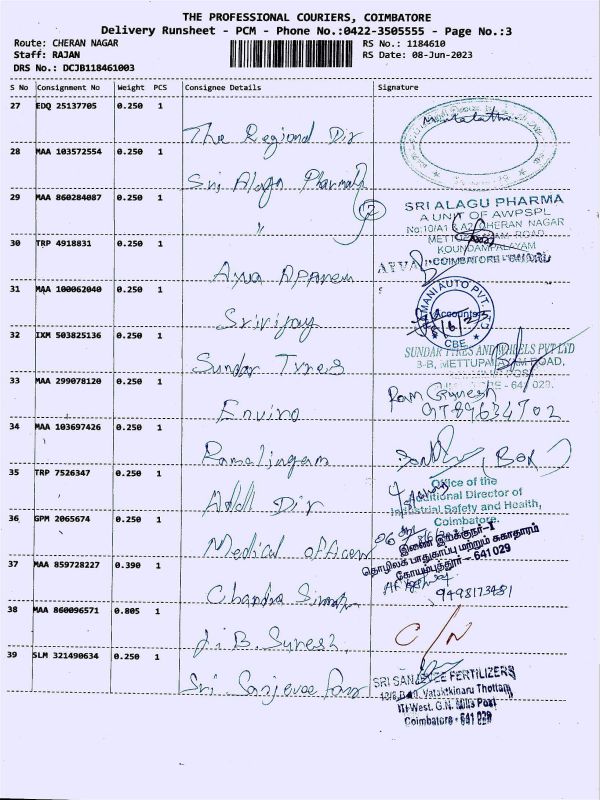 THE PROFESSIONAL COURIERS, COIMBATORE
Delivery Runsheet - PCM - Phone No.:0422-3505555 - Page No.:3
Route: CHERAN NAGAR RS No.: 1184610
Staff: RAJAN RS Date: 08-Jun-2023
DRS No.: DCJB118461003
S No Consignment No Weight PCS Consignee Details Signature
27 EDQ 25137705 0.250 1 The Regional Dir
28 MAA 103572554 0.250 1 Sri Alagu Pharma
29 MAA 860284087 0.250 1 〃 2
SRI ALAGU PHARMA
A UNIT OF AWPSPL
No:10/A1 & A2, CHERAN NAGAR
METTUPALAYAM ROAD,
KOUNDAMPALAYAM
30 TRP 4918831 0.250 1
31 MAA 100062040 0.250 1 Srivijay
MANI AUTO PVT. LTD
Accounts
CBE
32 IXM 503825136 0.250 1 Sundar Tyres
SUNDAR TYRES AND WHEELS PVT LTD
3-B, METTUPALAYAM ROAD,
33 MAA 299078120 0.250 1 Enviro Ram Ganesh
34 MAA 103697426 0.250 1 Ramalingam
35 TRP 7526347 0.250 1 Addl Dir
Office of the
Additional Director of
Industrial Safety and Health,
Coimbatore.
36 GPM 2065674 0.250 1 Medical officer
இணை இயக்குநர்-I
தொழிலக பாதுகாப்பு மற்றும் சுகாதாரம்
கோயம்புத்தூர் - 641 029
37 MAA 859728227 0.390 1 Chandra 9498173481
38 MAA 860096571 0.805 1 J.B. Suresh. C/N
39 SLM 321490634 0.250 1 Sri Sanjeevee
SRI SANJEVEE FERTILIZERS
Vatakkinaru Thottam
ITI West, G.N. Mills Post
Coimbatore - 641 029